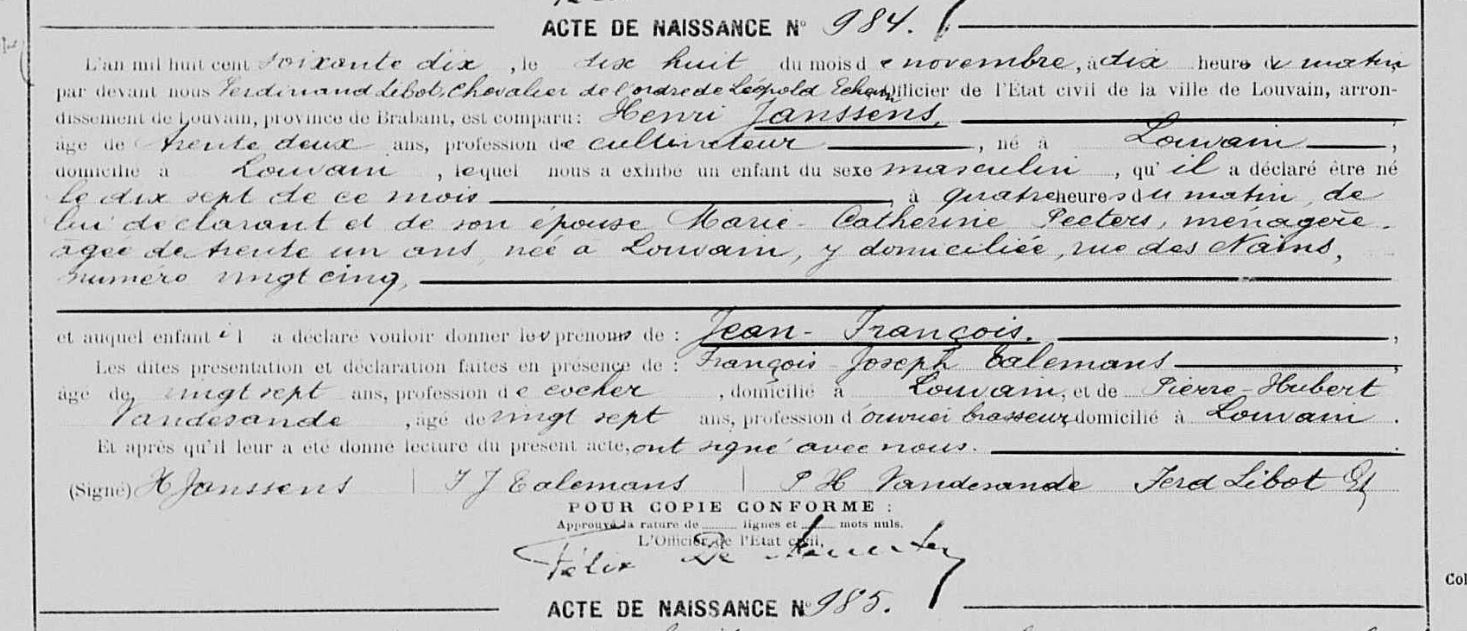 ACTE DE NAISSANCE N° 984.
L'an mil huit cent soixante dix , le dix huit du mois de novembre, à dix heures du matin
par devant nous Ferdinand Libot, Chevalier de l'ordre de Léopold Echevin Officier de l'État civil de la ville de Louvain, arron-
dissement de Louvain, province de Brabant, est comparu: Henri Janssens,
âgé de trente deux ans, profession de cultivateur , né à Louvain ,
domicilié à Louvain , lequel nous a exhibé un enfant du sexe masculin , qu'il a déclaré être né
le dix sept de ce mois , à quatre heures du matin, de
lui déclarant et de son épouse Marie-Catherine Peeters, ménagère.
agée de trente un ans, née à Louvain, y domiciliée, rue des Nains,
numéro vingt cinq,
et auquel enfant il a déclaré vouloir donner les prénoms de : Jean-François. ,
Les dites présentation et déclaration faites en présence de : François Joseph Ealemans ,
âgé de vingt sept ans, profession de cocher , domicilié à Louvain, et de Pierre-Hubert
Vandesande , âgé de vingt sept ans, profession d'ouvrier brasseur, domicilié à Louvain .
Et après qu'il leur a été donné lecture du présent acte, ont signé avec nous.
(Signé) H Janssens | F J Ealemans | P H Vandesande Ferd Libot
POUR COPIE CONFORME :
Approuvé la rature de lignes et mots nuls.
L'Officier de l'État civil,
Félix De
ACTE DE NAISSANCE N° 985.
Col